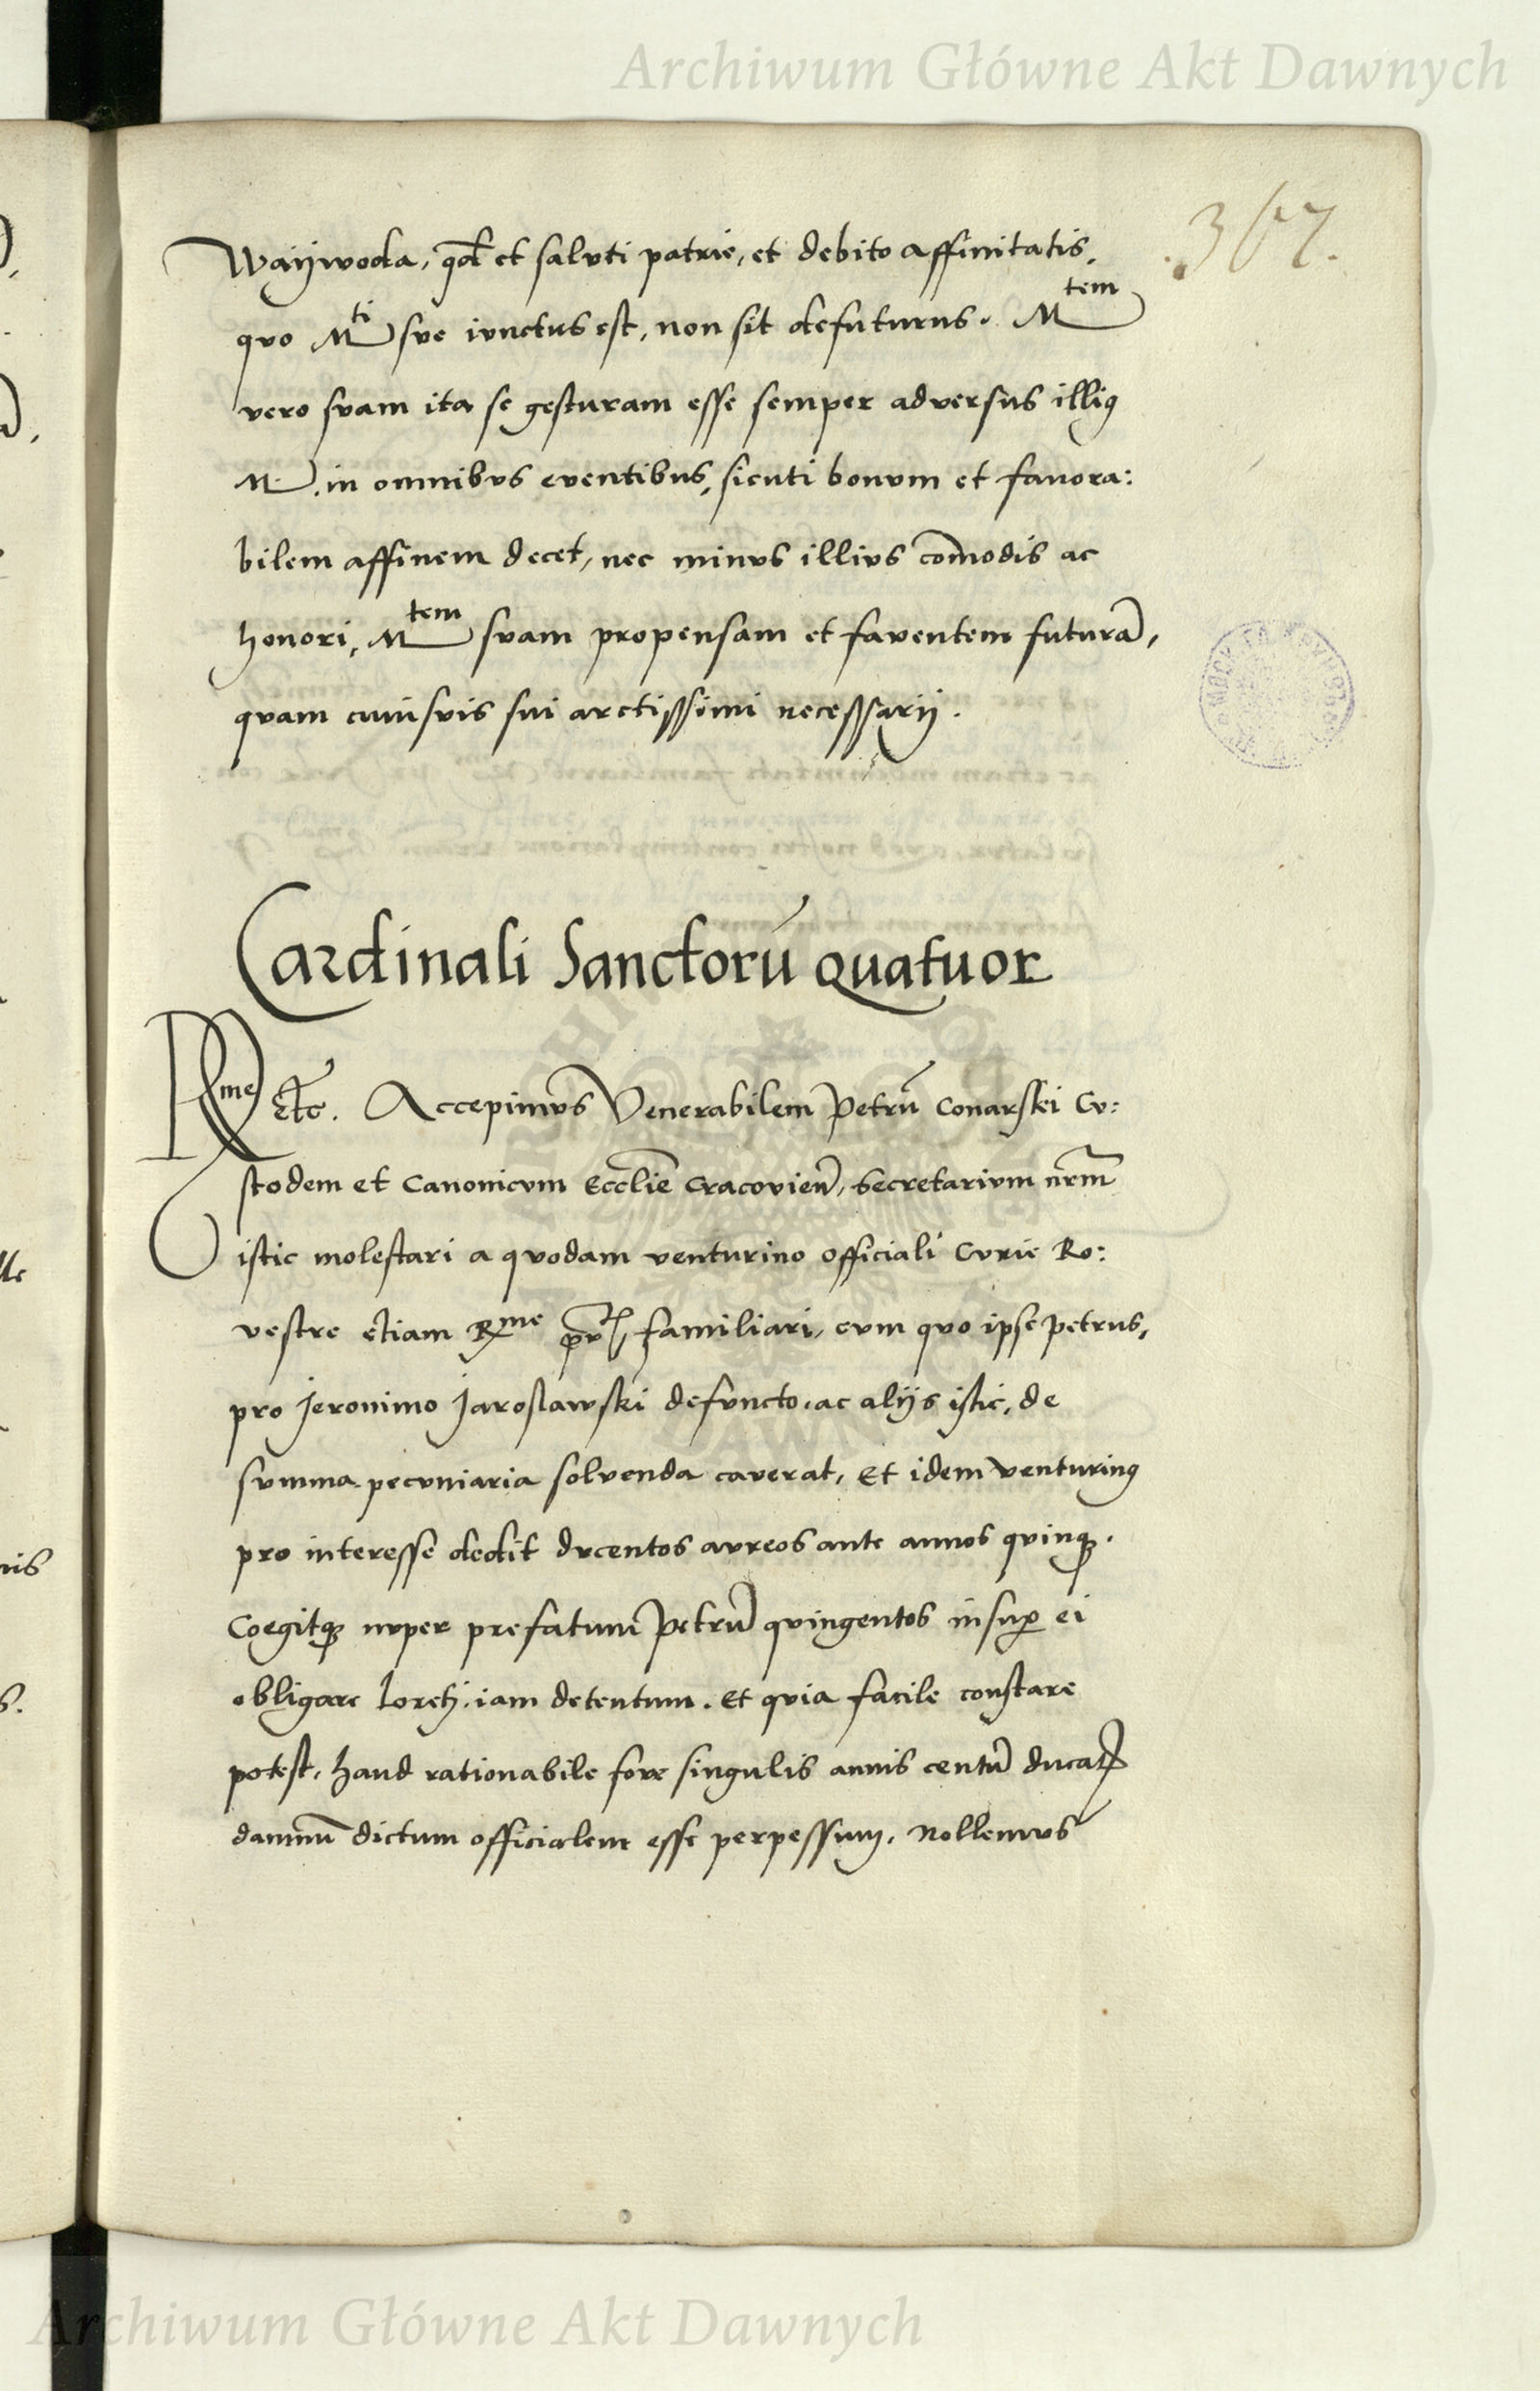 Archiwum Główne Akt Dawnych
.367.
Waÿwoda, qd̄ et saluti patrie, et debito affinitatis,
quo Mti sue iunctus est, non sit defuturus. Mtem
vero suam ita se gesturam esse semper adversus illiꝰ
M. in omnibus eventibus, sicuti bonum et favora:
bilem affinem decet, nec minus illius com̄odis ac
honori, Mtem suam propensam et faventem futurā,
quam cuiusvis sui arctissimi necessarij.
Cardinali Sanctorū quatuor
Rme etc. Accepimus Venerabilem Petrū Conarski Cu:
stodem et Canonicum Eccl̄ie Cracovien̄, Secretarium nr̄m
istic molestari a quodam venturino officiali Curie Ro:
vestre etiam Rme familiari, cum quo ipse petrus,
pro Jeronimo Jaroslawski defuncto, ac alijs istic, de
summa pecuniaria solvenda caverat, Et idem venturinꝰ
pro interesse dedit ducentos aureos ante annos quinqꝫ.
Coegitqꝫ nuper prefatum Petrū quingentos insuꝑ ei
obligare loretj. iam detentum. Et quia facile constare
potest, haud rationabile fore singulis annis centū ducatꝭ
damnū dictum officialem esse perpessum. Nollemus
Archiwum Główne Akt Dawnych